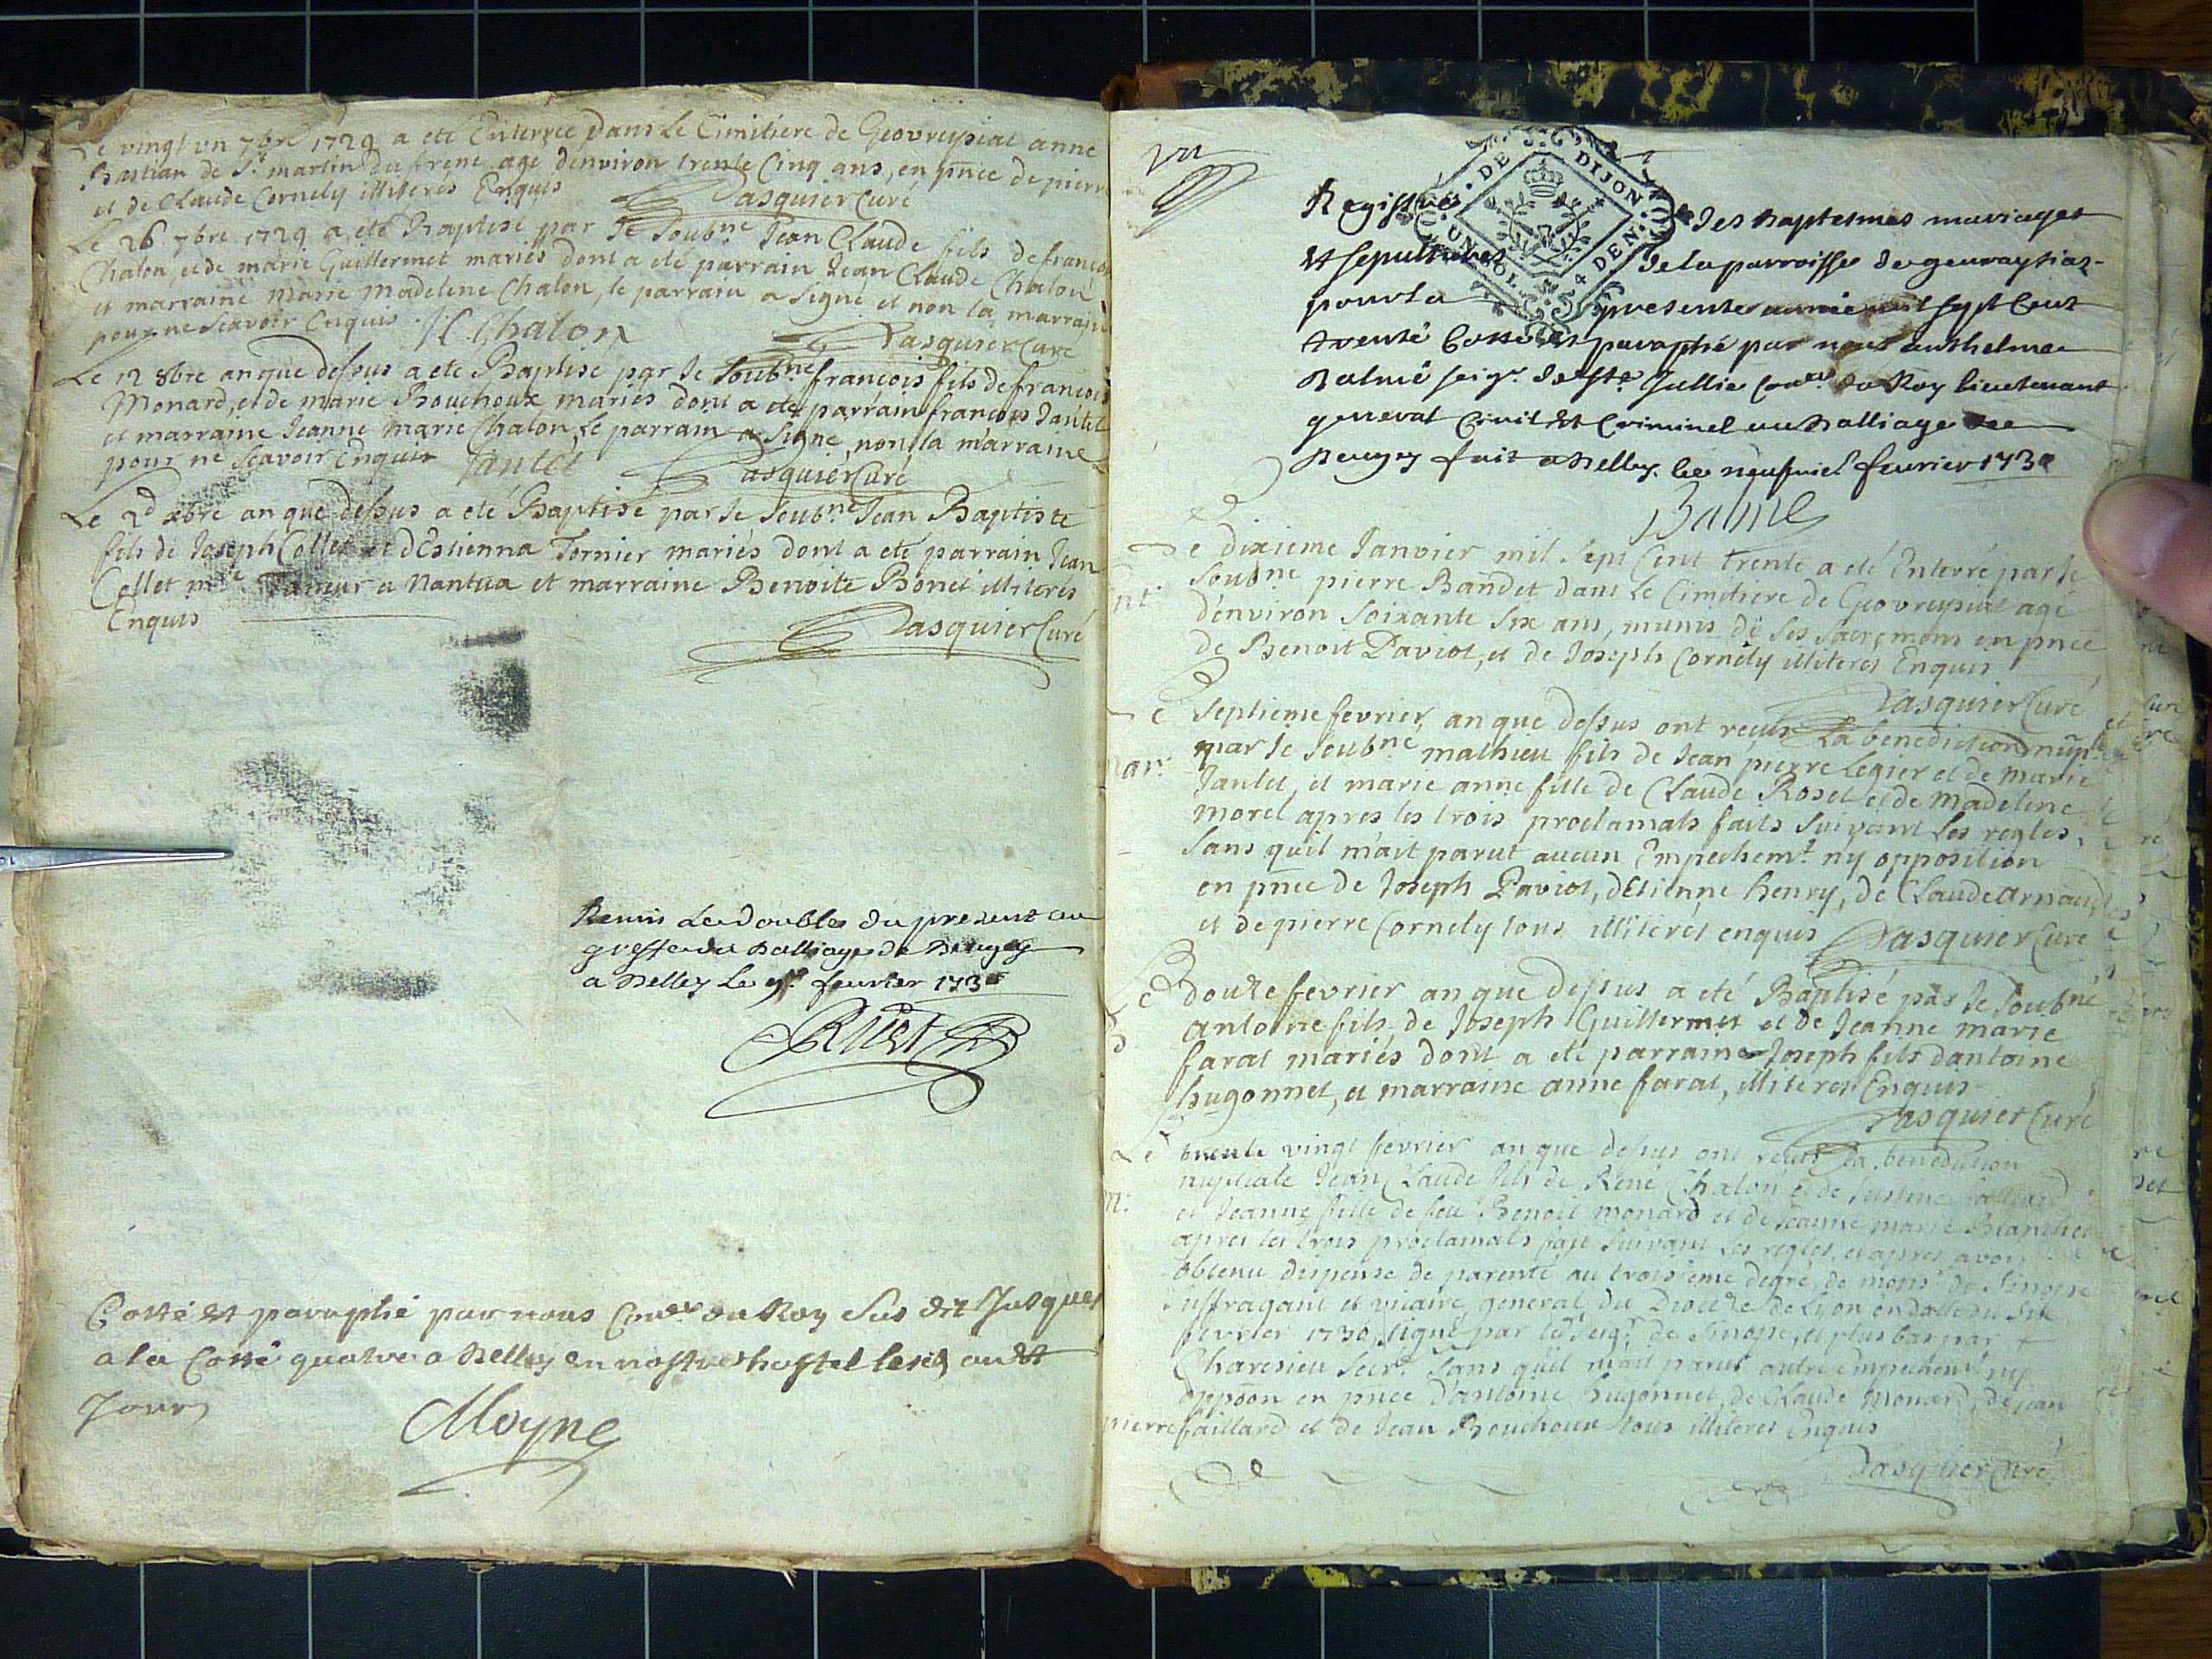 Le vingt un 7bre 1729 a eté Enterree dans Le Cimitiere de Geovreysiat anne
Bastian de St martin du frene agé denviron trente Cinq ans, en pnce de pierre
et de Claude Cornely illiterés Enquis
Pasquier Curé
Le 26 7bre 1729 a eté Baptisé par Je Soubné Jean Claude fils de francois
Chalon, et de marie Guillermet mariés dont a eté parrain Jean Claude Chalon
et marraine marie madelene Chalon, le parrain a signé et non la marraine
pour ne scavoir Enquis JC Chalon
Pasquier Curé
Le 12 8bre an que dessus a ete Baptisé par Je Soubné francois fils de francois
Monard, et de marie Bouchoux mariés dont a ete parrain francois Jantet
et marraine Jeanne marie Chalon, le parrain a Signé, non la marraine
pour ne scavoir Enquis Jantet Pasquier Curé
Le 2d xbre an que dessus a eté Baptisé par Je Soubné Jean Baptiste
fils de Joseph Collet et dEstienna Tornier mariés dont a eté parrain Jean
Collet mre Taneur a Nantua et marraine Benoite Bonet illiterés
Enquis
Pasquier Curé
Remis Le double du present au
greffe du Balliage de Beugey
a Belley Le 9e feurier 1730
Cotté et paraphé par nous Coner du Roy Sus dit Jusques
a la Cotté quatre a Belley en nostre hostel lesd an et
Jour
Moyne
Registres des Baptesmes mariages
et sepultures de la parroisse de geuvraysiaz
pour la presente année mil sept Cent
trente Cotté et paraphé par nous anthelme
Balme seigr de Ste Jullie Coner du Roy lieutenant
general Civil et Criminel au Balliage de
Beugey fait a Belley le neufvie feurier 1730
Balme
Le dixieme Janvier mil Sept Cent trente a eté Enterré par Je
Soubné pierre Bandet dans Le Cimitiere de Geovreysiat agé
denviron Soixante Six ans, munis de ses sacremens en pnce
de Benoit Paviot, et de Joseph Cornely illiterés Enquis
Pasquier Curé
Le Septieme fevrier an que dessus ont reçus La benediction nup.
par Je Soubné mathieu fils de Jean pierre Legier et de marie
Jantet, et marie anne fille de Claude Roset et de madelene
morel apres les trois proclamats faits suivant Les regles,
Sans quil m'ait parut aucun Empechemt ny opposition
en pnce de Joseph Paviot, dEtienne henry, de Claude arnaud
et de pierre Cornely tous illiterés enquis Pasquier Curé
Le Douze fevrier an que dessus a eté Baptisé par Je Soubné
antoine fils de Joseph Guillermet et de Jeanne marie
farat mariés dont a eté parraine Joseph fils dantoine
hugonnet, et marraine anne farat, illiterés Enquis
Pasquier Curé
Le vingt fevrier an que dessus ont reçus La benediction
nuptiale Jean Claude fils de René Chalon et de Justine
et Jeanne fille de feu Benoit monard et de Jeanne marie Blanchet
apres les trois proclamats fait suivant Les regles, et apres avoir
obtenu dispense de parenté au troisieme degré, de monsr de Sinope
suffragant et vicaire general du Dioceze de Lyon en datte du Six
fevrier 1730, signé par led seigr de Sinope, et plus bas par
Sans quil m'ait parut autre empechemt ny
oppoon en pnce d'antoine hugonnet, de Claude Monard, de jean
pierre faillard et de Jean Bouchoux tous illiterés Enquis
Pasquier Curé
UN SOL 4 DEN.
G. DE DIJON